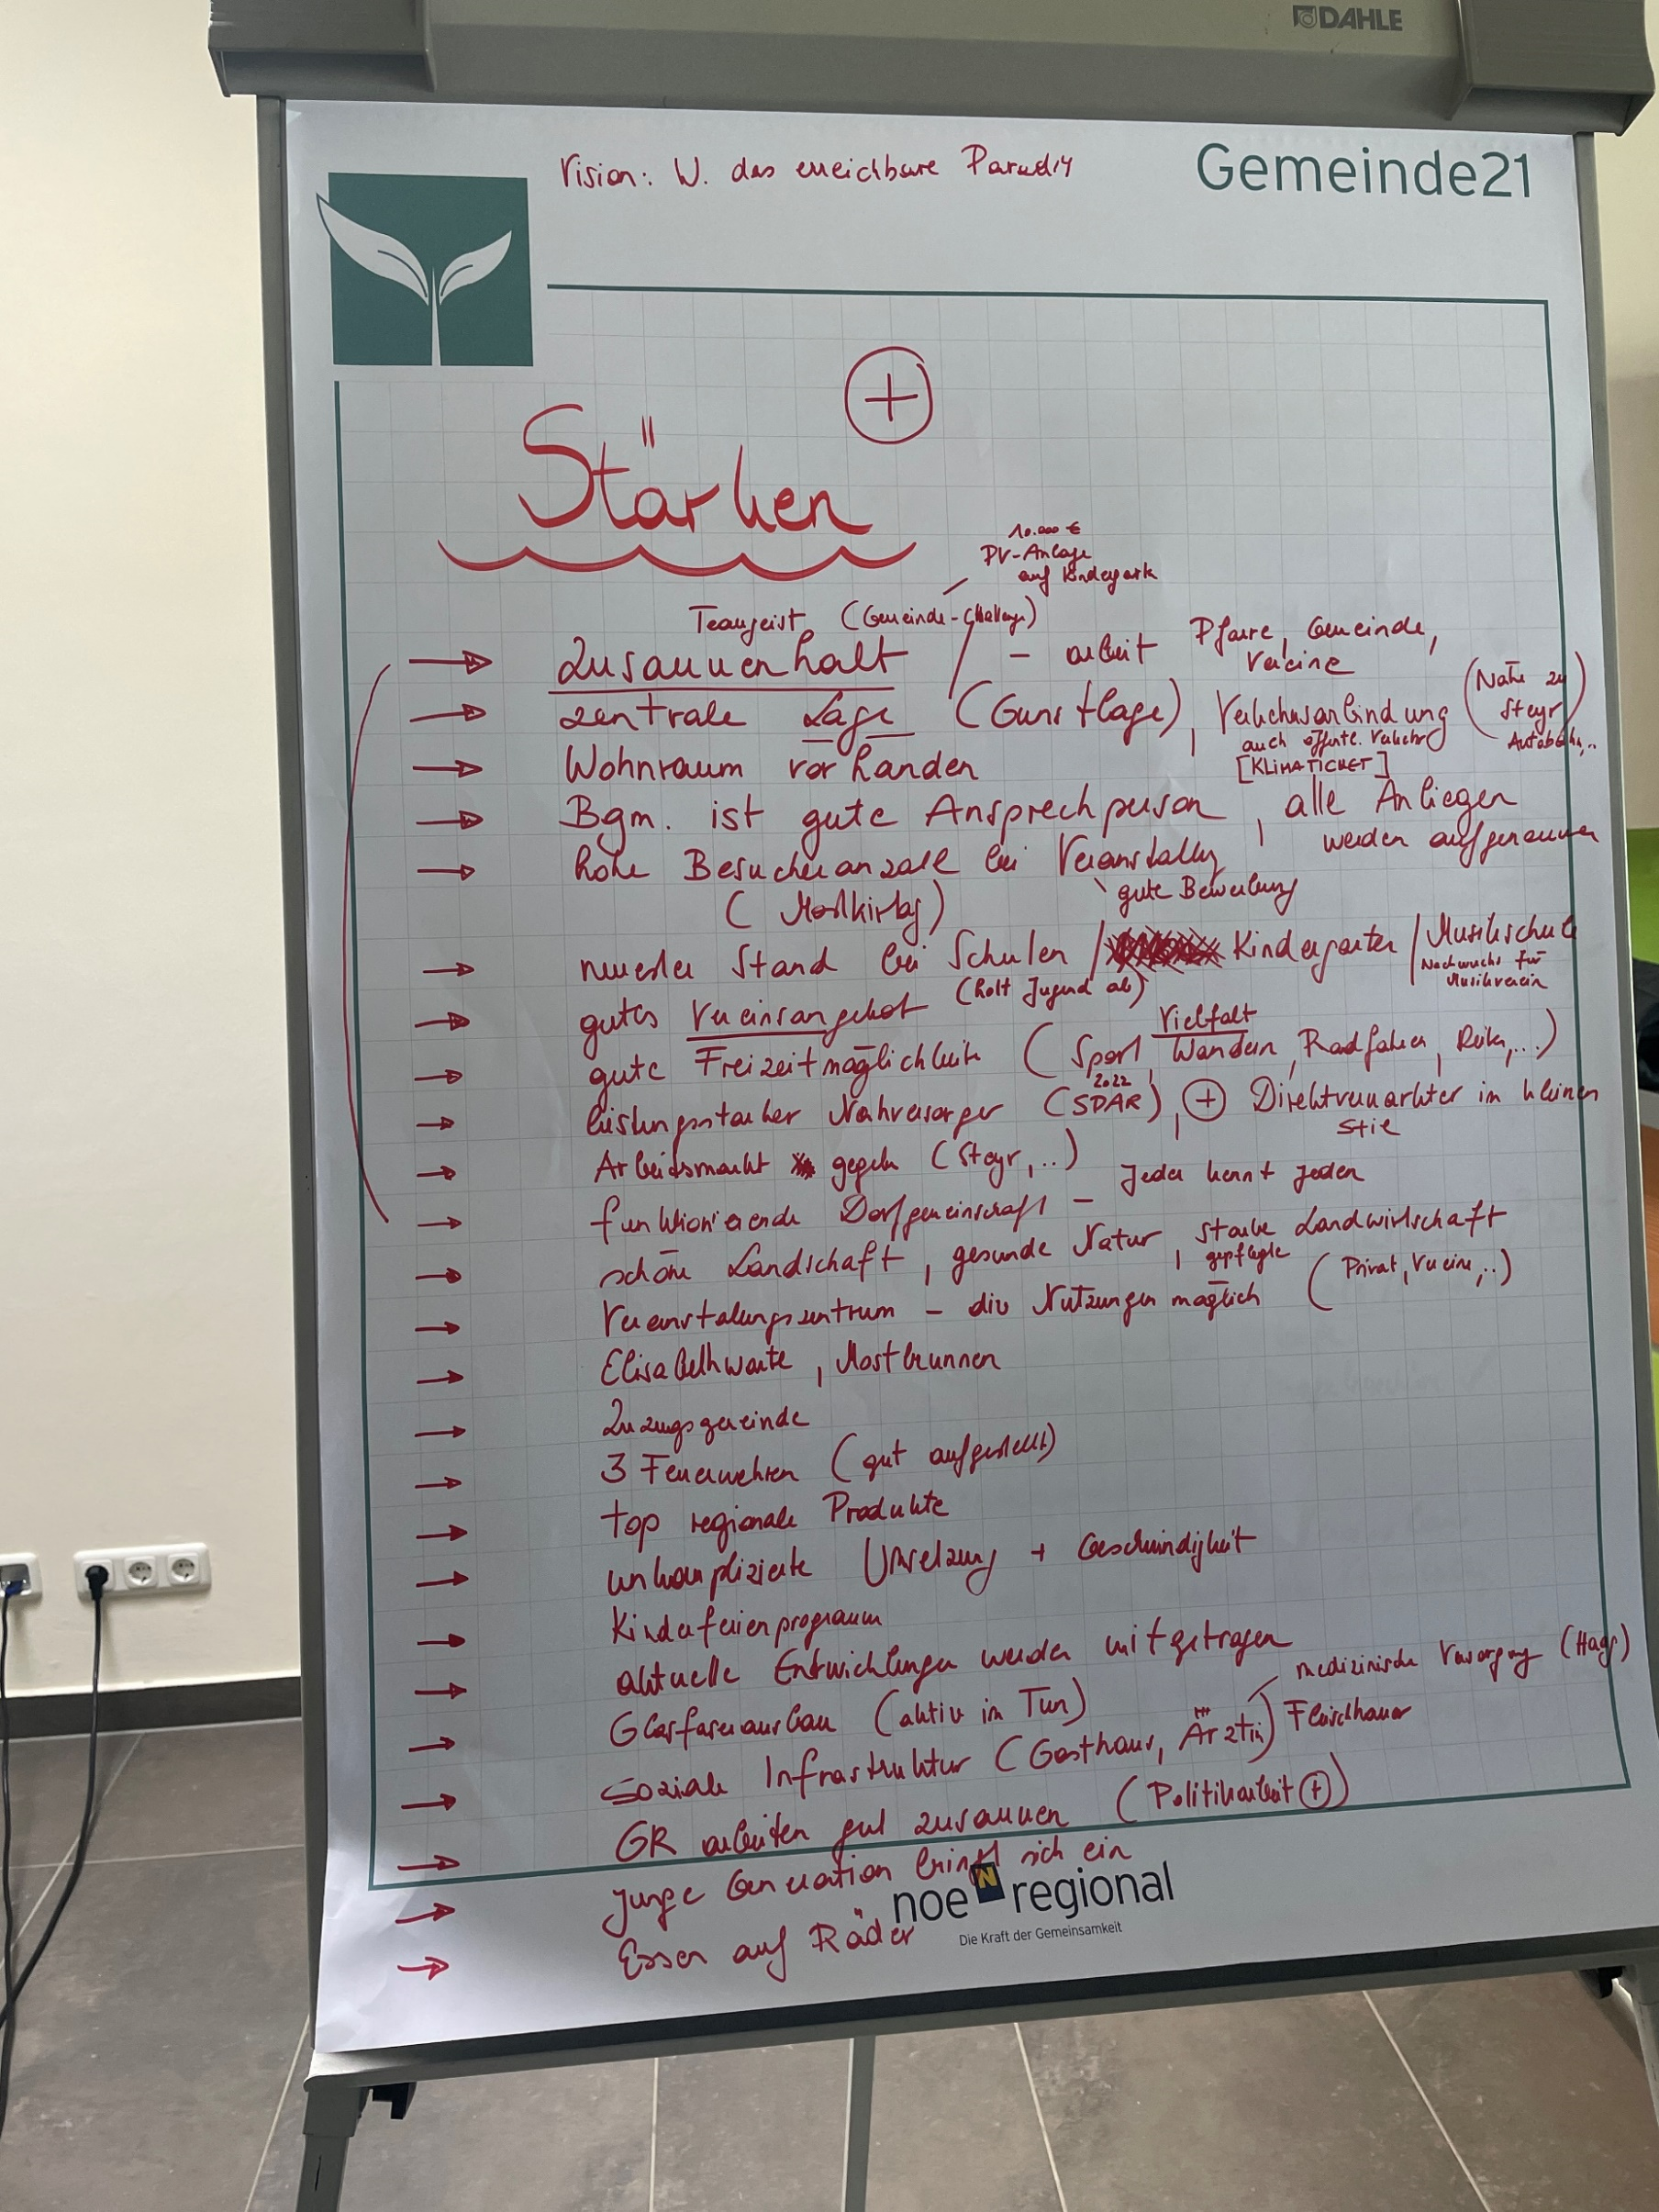 DAHLE
Vision: W. das erreichbare Paradis
Gemeinde21
+
Stärken
10.000 €
PV-Anlage
auf Kindergark
Teamgeist (Gemeinde-Challenge)
→ Zusammenhalt - arbeit Pfarre, Gemeinde,
Vereine
→ zentrale Lage (Gunstlage), Verkehrsanbindung (Nähe zu
Steyr
Autobahn,..)
auch öffentl. Verkehr
[KLIMATICKET]
→ Wohnraum vorhanden
→ Bgm. ist gute Ansprechperson, alle Anliegen
werden aufgenommen
→ hohe Besucheranzahl bei Veranstaltg
gute Bewerbung
(Mostkirtag)
→ neuester Stand bei Schulen / Kindergarten / Musikschule
Nachwuchs für
Musikverein
→ gutes Vereinsangebot (holt Jugend ab)
Vielfalt
→ gute Freizeitmöglichkeite (Sport, Wandern, Radfahren, Reiten,...)
2022
→ leistungsstarker Nahversorger (SPAR), + Direktvermarkter im kleinen
Stil
→ Arbeitsmarkt gegeben (Steyr,..)
→ funktionierende Dorfgemeinschaft - Jeder kennt jeden
→ schöne Landschaft, gesunde Natur, starke Landwirtschaft
gepflegte
→ Veranstalungszentrum - div Nutzungen möglich (Privat, Vereine,..)
→ Elisabethwarte, Mostbrunnen
→ Zuzugsgemeinde
→ 3 Feuerwehren (gut aufgestellt)
→ top regionale Produkte
→ unkomplizierte Umsetzung + Geschwindigkeit
→ Kinderferienprogramm
→ aktuelle Entwicklungen werden mitgetragen
medizinische Versorgung (Haag)
→ Glasfaserausbau (aktiv im Tun)
→ soziale Infrastruktur (Gasthaus, Ärztin) Fleischhauer
→ GR arbeiten gut zusammen (Politikarbeit +)
→ junge Generation bringt sich ein
→ Essen auf Räder
noe regional
N
Die Kraft der Gemeinsamkeit